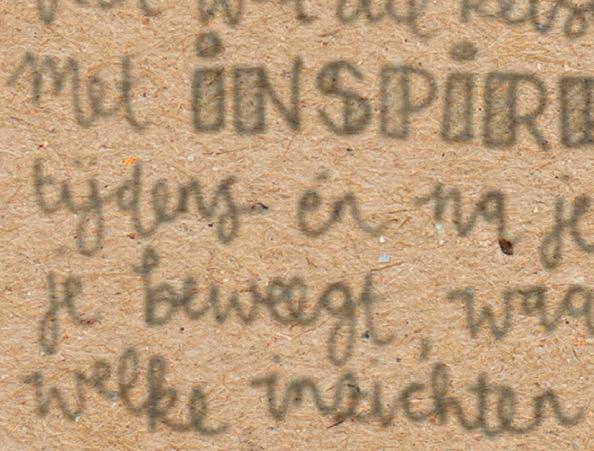 met iNSPiR
tijdens én na je
je beweegt, waa
welke inzichten